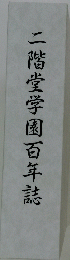 二階堂学園百年誌